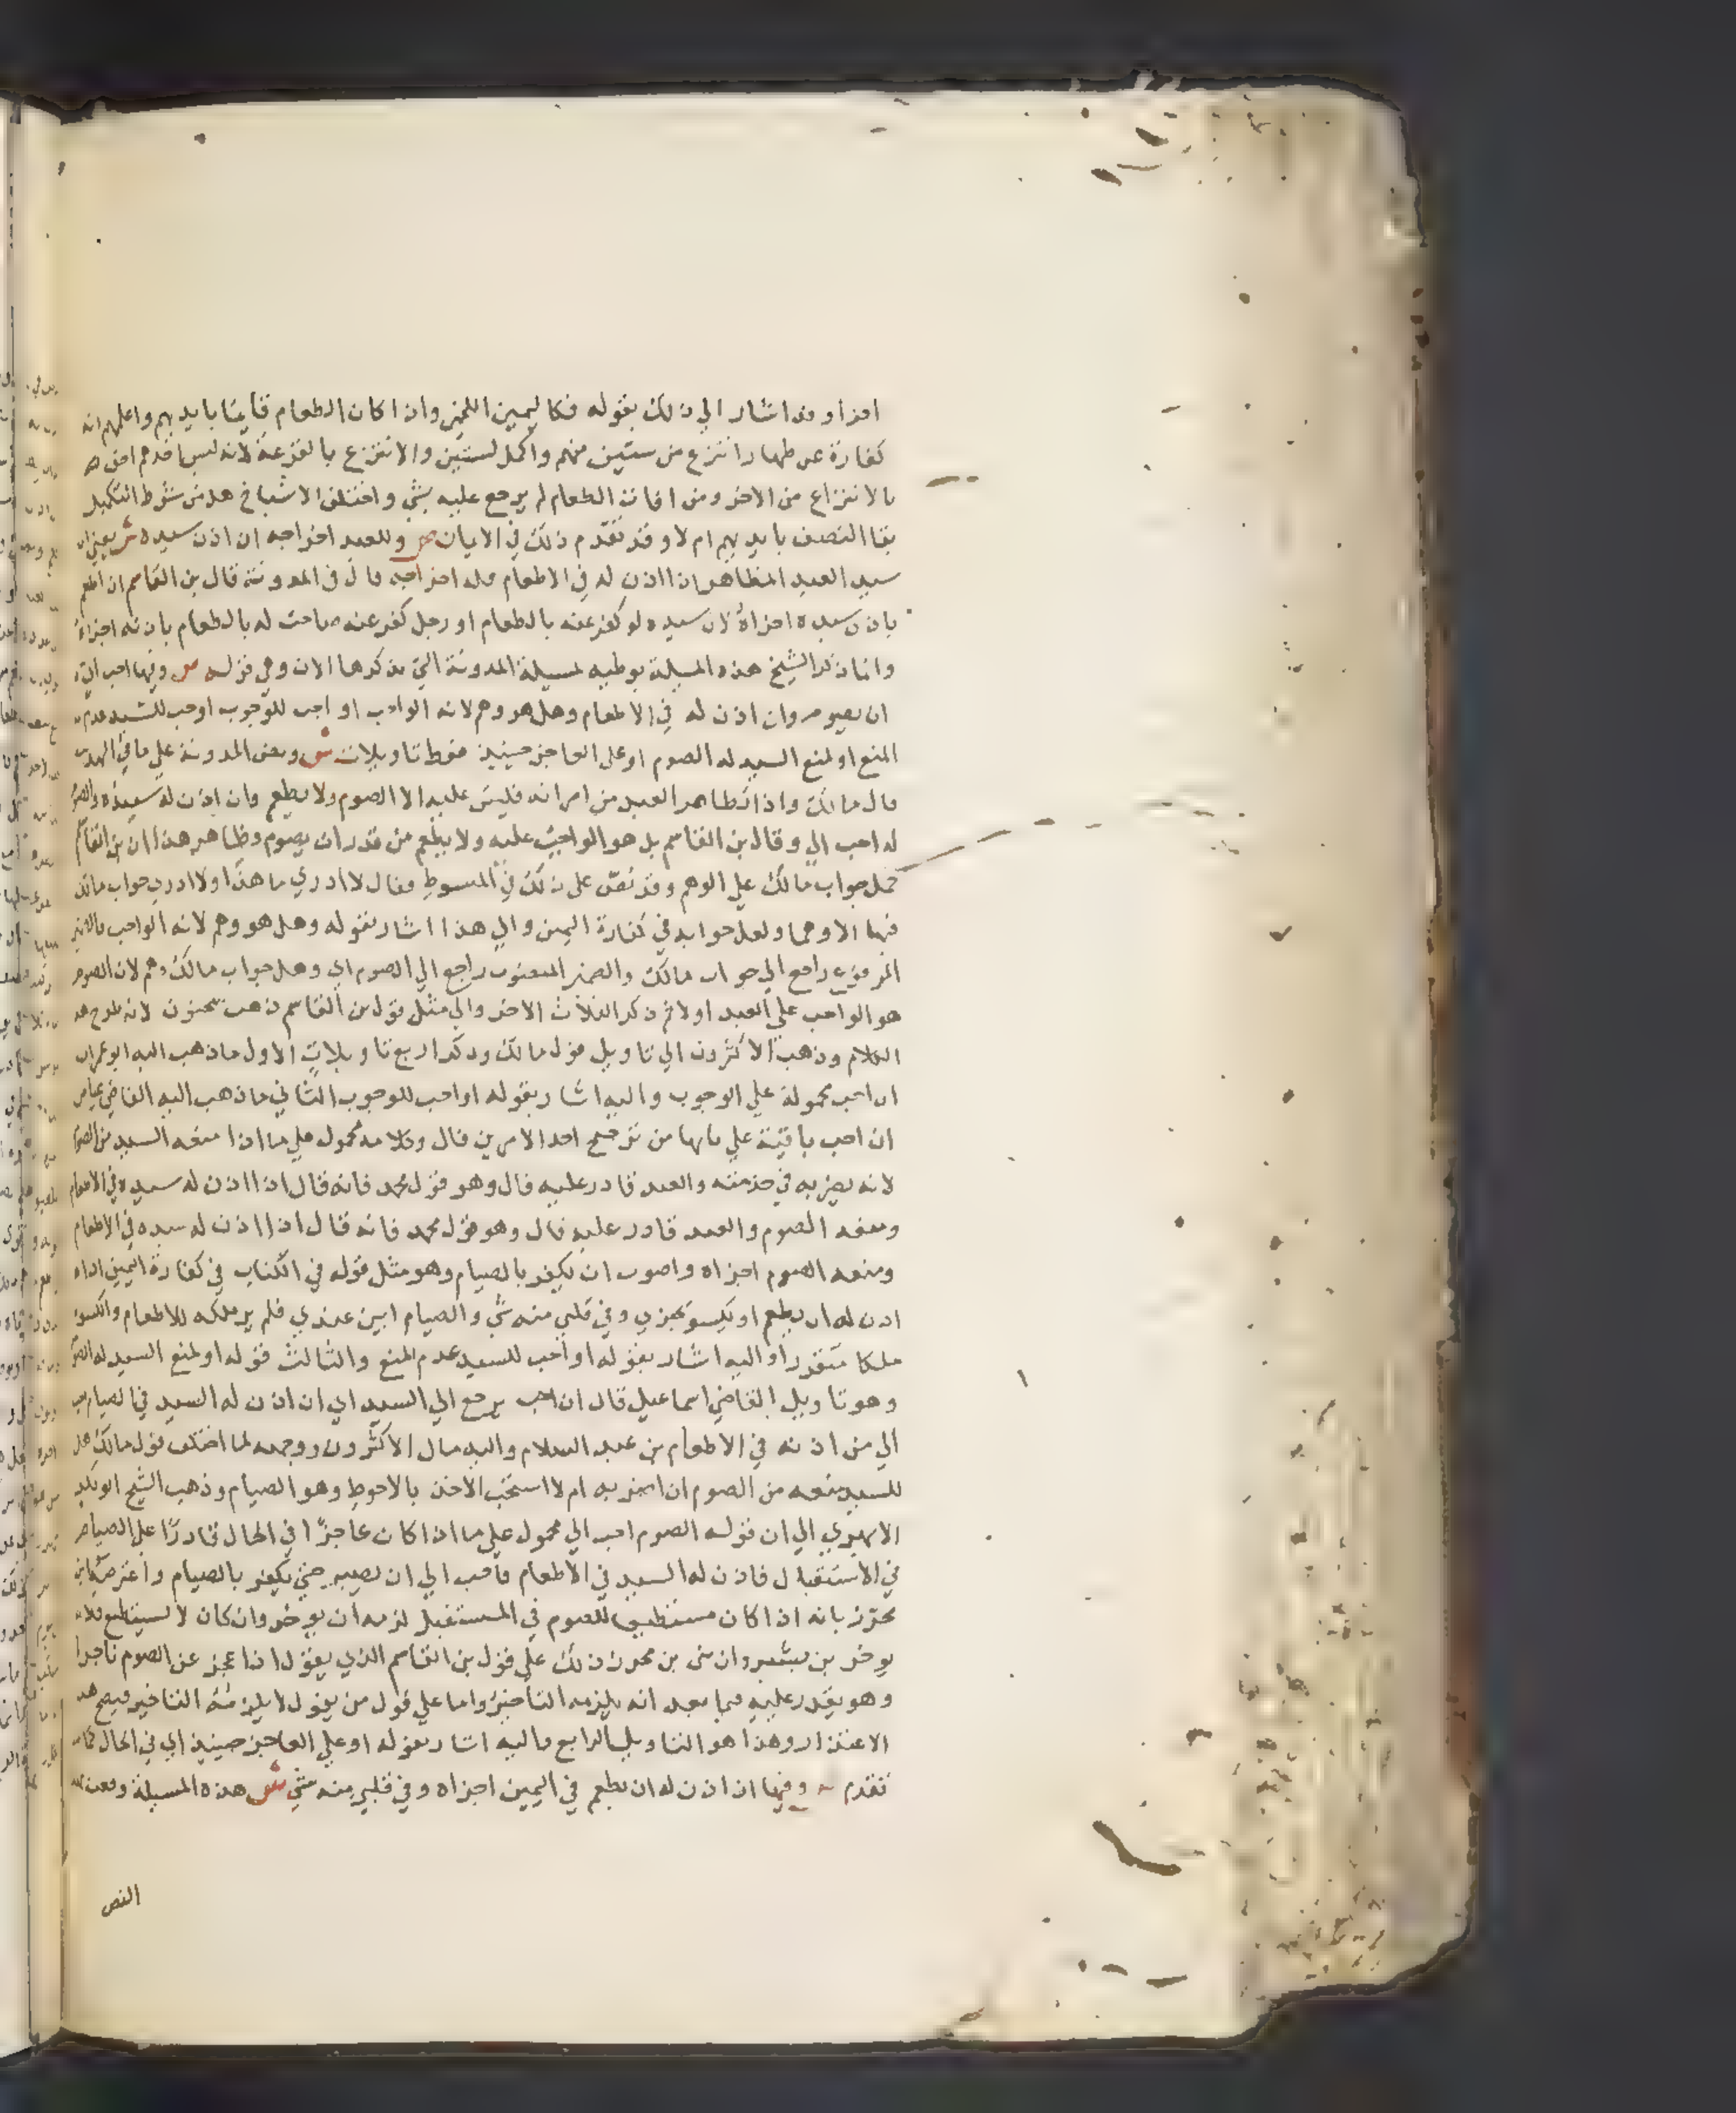 اجزا وقد اشار الي ذلك بقوله فكاليمين اللخمي وان اكان الطعام قايما بايديهم واعلمهم انه
كفارة عن ظهار انتزع من ستين منهم واكمل لستين والا نتزع بالقرعة لانه ليس احدهم احق
بالانتزاع من الاخر ومن افات الطعام لم يرجع عليه بشي واختلف الاشياخ هل من شرط التكميل
بقا النصف بايديهم ام لا وقد تقدم ذلك في الايمان ص وللعبد اخراجه ان اذن سيده ش يعني ان
سيد العبد المظاهر اذا اذن له في الاطعام فله اخراجه قال في المدونة قال بن القاسم ان اطعم
باذن سيده اجزاه لان سيده لو كفر عنه بالطعام او رجل كفر عنه صاحب له بالطعام باذنه اجزاه
وانما ذكر الشيخ هذه المسيلة توطيه لمسيلة المدونة التي يذكرها الان وهي قوله ص وفيها احب الي
ان يصوم وان اذن له في الاطعام وهل هو وهم لانه الواجب او احب للوجوب او احب للسيد عدم
المنع او لمنع السيد له الصوم او علي العاجز حينيذ فقط تاويلات ش ونص المدونة علي ما في التهذيب
قال مالك واذا تظاهر العبد من امراته فليس عليه الا الصوم ولا يطعم وان اذن له سيده والصوم
له احب الي وقال بن القاسم بل هو الواجب عليه ولا يطعم من قدر ان يصوم وظاهر هذا ان بن القاسم
حمل جواب مالك علي الوهم وقد نص علي ذلك في المبسوط فقال لا ادري ما هذا ولا ادري جواب مالك
فيها الا وهما ولعل جوابه في كفارة اليمين والي هذا اشار بقوله وهل هو وهم لانه الواجب فالضمير
المرفوع راجع الي جواب مالك والضمير المنصوب راجع الي الصوم اي وهل جواب مالك وهم لان الصوم
هو الواجب علي العبد اولا ثم ذكر الثلاث الاخر والي مثل قول بن القاسم ذهب سحنون لانه طرح هذا
الكلام وذهب الاكثرون الي تاويل قول مالك وذكر اربع تاويلات الاول ما ذهب اليه ابو عمران
ان احب محمولة علي الوجوب واليه اشار بقوله او احب للوجوب الثاني ما ذهب اليه القاضي عياض
ان احب باقية علي بابها من ترجيح احد الامرين قال وكلامه محمول علي ما اذا منعه السيد من الصوم
لانه يضر به في خدمته والعبد قادر عليه قال وهو قول محمد فانه قال اذا اذن له سيده في الاطعام
ومنعه الصوم والعبد قادر عليه قال وهو قول محمد فانه قال اذا اذن له سيده في الاطعام
ومنعه الصوم اجزاه واصوب ان يكفر بالصيام وهو مثل قوله في الكتاب في كفارة اليمين اذا
اذن له ان يطعم او يكسو يجزي وفي قلبي منه شي والصيام ابين عندي فلم ير ملكه للاطعام والكسوة
ملكا متقررا واليه اشار بقوله او احب للسيد عدم المنع والثالث قوله او لمنع السيد له الصوم
وهو تاويل القاضي اسماعيل قال ان احب يرجع الي السيد اي ان اذن له السيد في الصيام احب
الي من اذنه في الاطعام بن عبد السلام واليه مال الاكثرون ووجهه لما اختلف قول مالك هل
للسيد منعه من الصوم ان اضر به ام لا استحب الاخذ بالاحوط وهو الصيام وذهب الشيخ ابو بكر
الابهري الي ان قوله الصوم احب الي محمول علي ما اذا كان عاجزا في الحال قادرا علي الصيام
في الاستقبال فاذن له السيد في الاطعام فاحب الي ان يصبر حتي يكفر بالصيام واعترضه بن
محرز بانه اذا كان مستطيعا للصوم في المستقبل لزمه ان يوخر وان كان لا يستطيع فلا
يوخر بن بشير وان بني بن محرز ذلك علي قول بن القاسم الذي يقول اذا عجز عن الصوم ناجزا
وهو يقدر عليه فيما بعد انه يلزمه التاخير واما علي قول من يقول لا يلزمه التاخير فيصح هذا
الاعتذار وهذا هو التاويل الرابع واليه اشار بقوله او علي العاجز حينيذ اي في الحال كما
تقدم ص وفيها ان اذن له ان يطعم في اليمين اجزاه وفي قلبي منه شي ش هذه المسيلة وقعت
النص